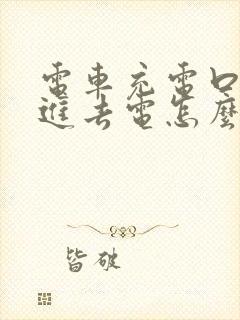 電車充電口
進去電怎麼
皆破